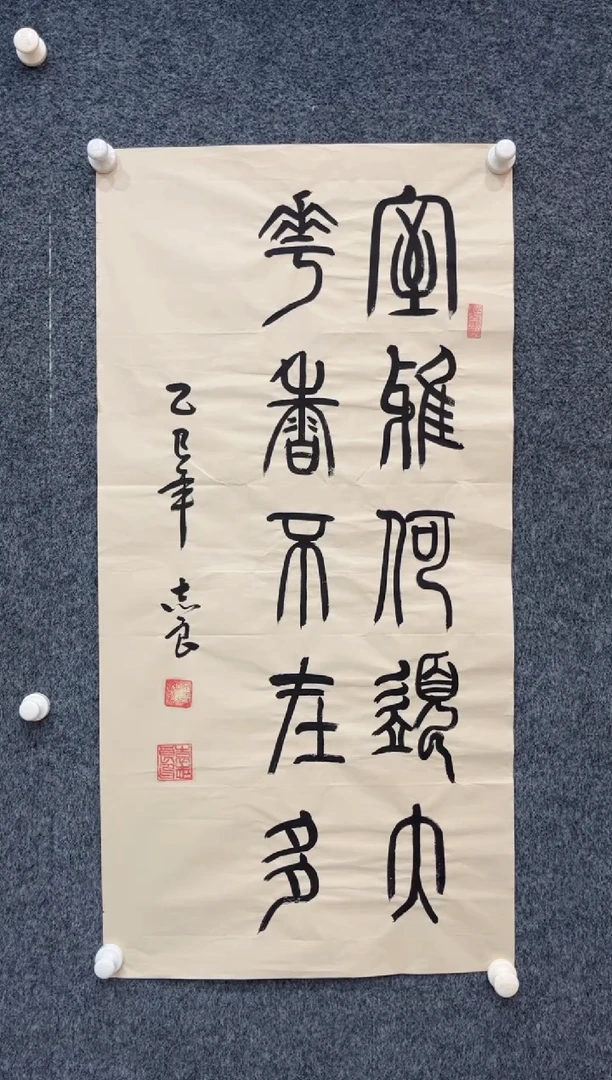 室雅何須大
華香不在多
乙巳年 志良